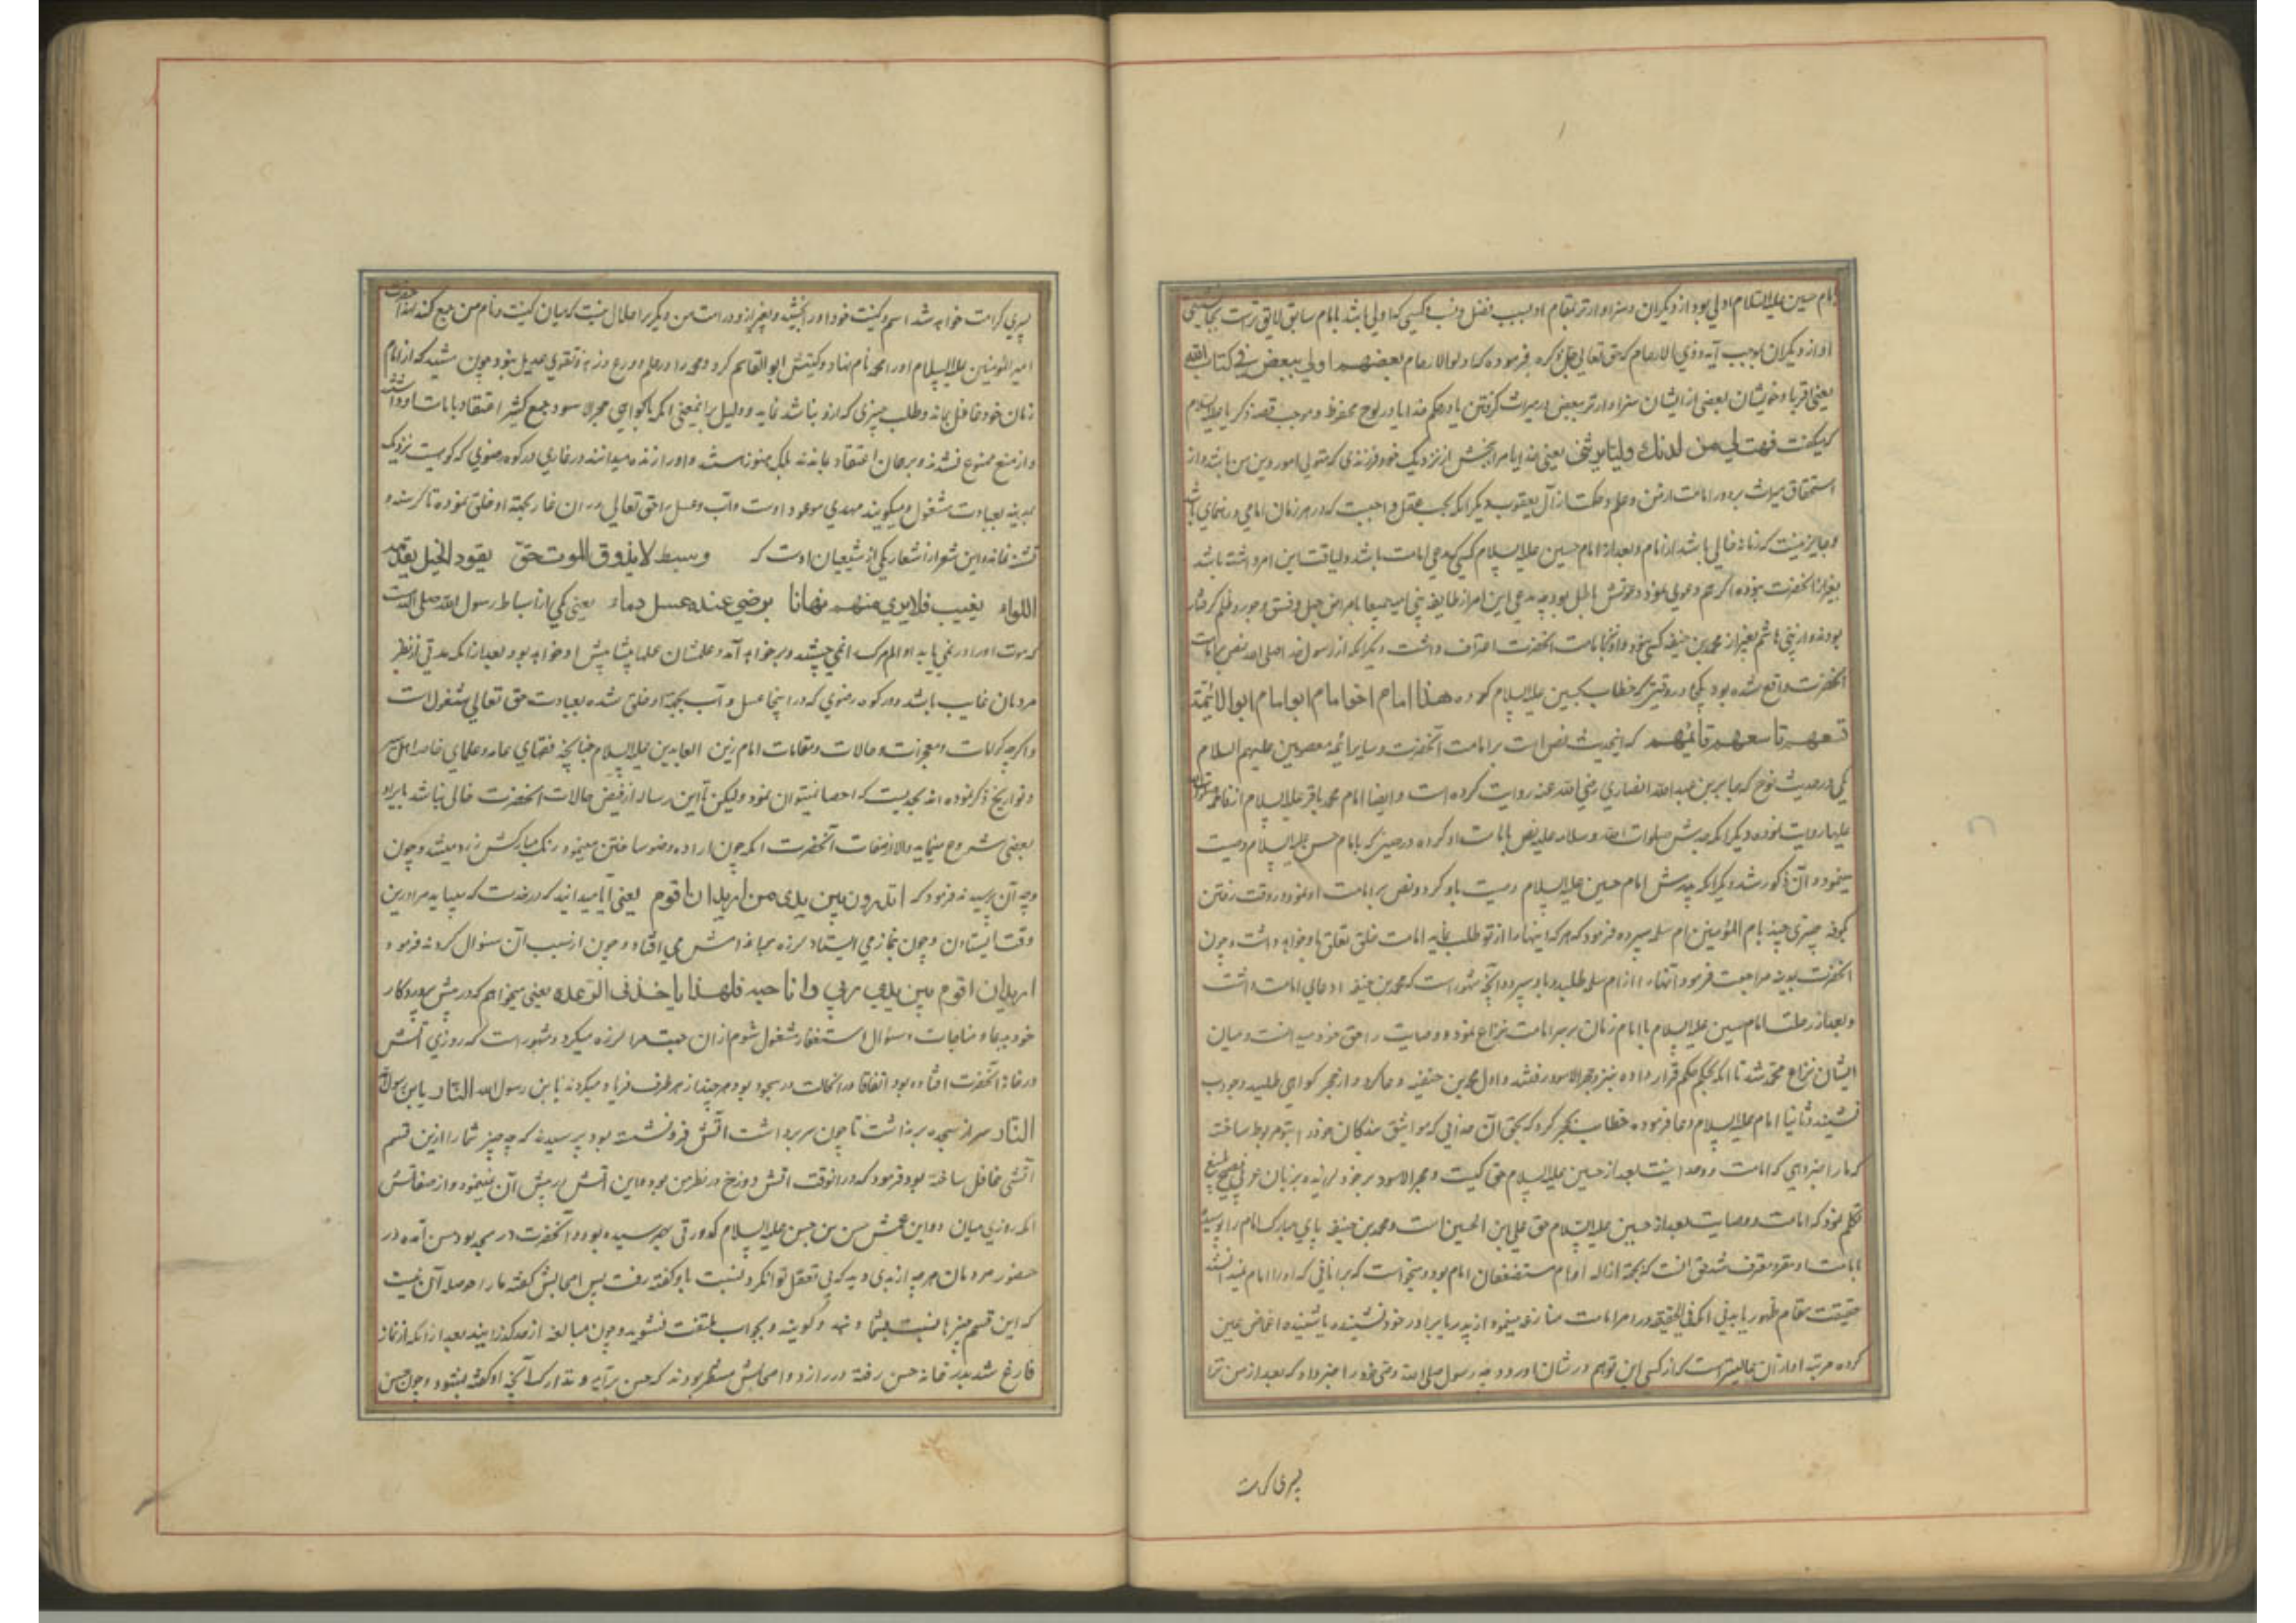 امام حسین علیه السلام اولی بود از دیگران و سزاوارتر بمقام او بسبب فضل و نسب و کسی که اولی باشد بامام سابق لایق تراست بجانشینی
او از دیگران بموجب آیه ذوی الارحام که حق تعالی جل ذکره فرموده که اولوا الارحام بعضهم اولی ببعض فی کتاب الله
یعنی اقربا و خویشان بعضی از ایشان سزاوارتر ببعض در میراث گرفتن یا در حکم خدا یا در لوح محفوظ و بموجب قصه زکریا علیه السلام
که گفت فهب لی من لدنک ولیا یرثنی یعنی خدایا مرا ببخش از نزدیک خود فرزندی که متولی امور دین من باشد و از
استحقاق میراث برد و امامت از من و علم و حکمت از آل یعقوب دیگر آنکه بحسب عقل واجبست که در هر زمان امامی و رهنمای باشد
و جایز نیست که زمانه خالی باشد از امام و بعد از امام حسین علیه السلام کسی که مدعی امامت باشد و لیاقت این امر داشته باشد
بغیر از آنحضرت نبوده اگر هم دعوی نمود دعوتش باطل بود چه مدعی این امر از طایفه بنی امیه جمیعا بامراض جهل و فسق و جور و ظلم گرفتار
بودند و از بنی هاشم بغیر از محمد بن حنیفه کسی نبود و او نیز بامامت آنحضرت اعتراف داشت دیگر آنکه از رسول خدا صلی الله نص بر امامت
آنحضرت واقع شده بود یکی در وقتیکه خطاب بحسین علیه السلام کرده هذا امام اخو امام ابو امام ابو الائمة
تسعهم تاسعهم قائمهم که اینحدیث نص است بر امامت آنحضرت و سایر ائمه معصومین علیهم السلام
یکی در حدیث لوح که جابر بن عبدالله انصاری رضی الله عنه روایت کرده است و ایضا امام محمد باقر علیه السلام از فاطمه صلوات الله
علیها روایت نموده دیگر آنکه جدش صلوات الله و سلامه علیه نص بامامت او کرده در حینی که بامام حسن علیه السلام وصیت
مینمود و آن مذکور شد دیگر آنکه پدرش امام حسین علیه السلام وصیت باو کرد و نص بر امامت او نمود در وقت رفتن
کوفه چیزی چند بام المؤمنین ام سلمه سپرده فرمود که هر که اینها را از تو طلب نماید امامت خلق تعلق باو خواهد داشت و چون
آنحضرت بمدینه مراجعت فرمود آنها را از ام سلمه طلبید و باو سپرد و آنچه مشهور است که محمد بن حنیفه ادعای امامت داشت
و بعد از رحلت امام حسین علیه السلام با امام زمان بر سر امامت نزاع نموده و وصایت را حق خود میدانست و میان
ایشان نزاع ممتد شد تا آنکه بحکم حکم قرار داده بنزد حجر الاسود رفتند و اول محمد بن حنفیه دعا کرد و از حجر گواهی طلبید و جواب
نشنید و ثانیا امام علیه السلام دعا فرموده خطاب بحجر کرد که بحق آن خدایی که مواثیق بندگان خود را بتو مربوط ساخت
که ما را خبر دهی که امامت و وصایت بعد از حسین علیه السلام حق کیست و حجر الاسود بر خود لرزیده بزبان عربی فصیح
تکلم نمود که امامت و وصایت بعد از حسین علیه السلام حق علی ابن الحسین است و محمد بن حنیفه پای مبارک امام را بوسیده
بامامت او مقر و معترف شد حق آنست که بجهة ازاله اوهام مستضعفان امام بود و میخواست که بر آنانی که او را امام میدانستند
حقیقت بمقام ظهور یابد یعنی آنکه فی الحقیقه در امر امامت منازعه مینمود از پدر یا برادر خود نشنیده یا شنیده اغماض عین
کرده مرتبه او از آن عالیتر است که از کسی این توهم در شان او رود چه رسول صلی الله وصی خود را خبر داد که بعد از من ترا
پسری کرامت
پسری کرامت خواهد شد اسم و کنیت خود را باو بخشیدم و بغیر از او در امت من دیگریرا حلال نیست که میان کنیت و نام من جمع کند لهذا حضرت
امیر المؤمنین علیه السلام او را محمد نام نهاد و کنیتش ابو القاسم کرد و محمد را در علم و ورع و زهد و تقوی عدیل نبود چون میشد که از امام
زمان خود غافل بماند و طلب چیزی که از و نباشد نماید و دلیل برین معنی آنکه با گواهی حجر الاسود جمع کثیر اعتقاد بامامت او داشتند
و از منع ممنوع نشدند و بر همان اعتقاد بماندند بلکه هنوز هستند و او را زنده میدانند در غاری در کوه رضوی که کوهیست نزدیک
بمدینه بعبادت مشغول و میگویند مهدی موعود اوست و آب و عسل را حق تعالی در آن غار بجهة او خلق نموده تا گرسنه و
تشنه نماند و این شعر از اشعار یکی از شیعیان اوست که وسبط لایذوق الموت حتی یقود الخیل یقدمه
اللواء یغیب فلا یری منهم زمانا برضوی عنده عسل وماء یعنی یکی از اسباط رسول الله صلی الله است
که موت او را در نمی یابد و الم مرگ را نمی چشد و بر خواهد آمد و علمشان علمها پیشاپیش او خواهد بود بعد از آنکه مدتی از نظر
مردمان غایب باشد و در کوه رضوی که در اینجا عسل و آب بجهة او خلق شده بعبادت حق تعالی مشغول است
و اگر چه کرامات و معجزات و حالات و مقامات امام زین العابدین علیه السلام چنانچه فضلای عامه و علمای خاصه اهل سیر
و تواریخ ذکر نموده اند بحدیست که احصا نمیتوان نمود ولیکن تا این رساله از فیض حالات آنحضرت خالی نباشد بایراد
بعضی شروع مینماید و الا از صفات آنحضرت آنکه چون اراده وضو ساختن مینمود رنگ مبارکش زرد میشد و چون
وجه آن پرسیدند فرمود که اتدرون بین یدی من ارید ان اقوم یعنی آیا میدانید که در خدمت که میباید مرا درین
وقت ایستادن و چون بنماز می ایستاد لرزه بر اندامش می افتاد و چون از سبب آن سئوال کردند فرمود
ارید ان اقوم بین یدی ربی و اناجیه فلهذا یاخذنی الرعده یعنی میخواهم که در پیش پروردگار
خود بدعا و مناجات و سئوال و استغفار مشغول شوم از آن جهت مرا لرزه میگیرد و مشهور است که روزی آتش
در خانه آنحضرت افتاده بود اتفاقا در آنحالت در سجود بود هر چند از هر طرف فریاد میکردند یابن رسول الله النار یابن رسول الله
النار سر از سجده بر نداشت تا چون سر برداشت آتش فرو نشسته بود پرسیدند که چه چیز شما را ازین قسم
آتشی غافل ساخته بود فرمود که در آنوقت آتش دوزخ در نظر من بود و این آتش در پیش آن نمینمود و از صفاتش
آنکه روزی میان او و ابن عمش حسن بن حسن علیه السلام کدورتی بهم رسیده بود و آنحضرت در مسجد بود حسن آمده در
حضور مردمان هر چه از بدی و بدگویی تعقل توانکرد نسبت باو گفته رفت پس اصحابش گفتند ما را حوصله آن نیست
که این قسم چیزها نسبت بشما دهند و گویند و بجواب ملتفت نشوید و چون مبالغه از حد گذرانیدند بعد از آنکه از نماز
فارغ شد بدر خانه حسن رفته در را زد و اصحابش منتظر بودند که حسن برآید و تدارک آنچه او گفته بشنود و چون حسن